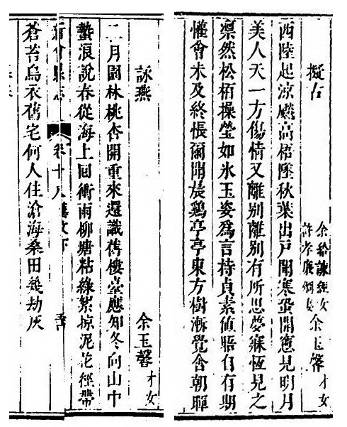 擬古
余玉馨 才女
西陸起涼飈高梧墜秋葉出戶聞寒蛩開見明月
美人天一方傷情又離別離別有所思夢寐恆見之
然松栢操瑩如氷玉姿為言持貞素自有期
懽會未及終悵爾聞晨鷄亭亭東方樹漸覺含朝暉
詠燕
余玉馨 才女
二月園林桃杏開重來還識舊樓臺應知冬向山中
蟄浪說春從海上回銜雨柳塘粘綠絮掠泥花徑帶
新會縣志 卷十八 藝文下
蒼苔烏衣舊宅何人住滄海桑田幾劫灰